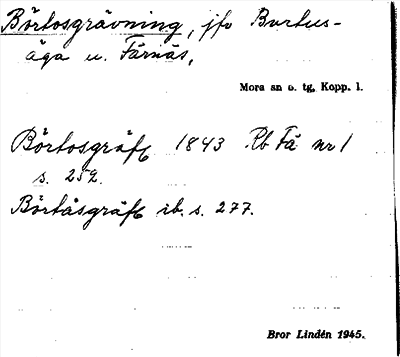 Börtosgrävning, jfr Bertus-
äga u. Färnäs,
Mora sn o. tg, Kopp. l.
Börtosgräfg 1843 Rb Fä nr 1
s. 252.
Börtåsgräfg ib. s. 277.
Bror Lindén 1945.